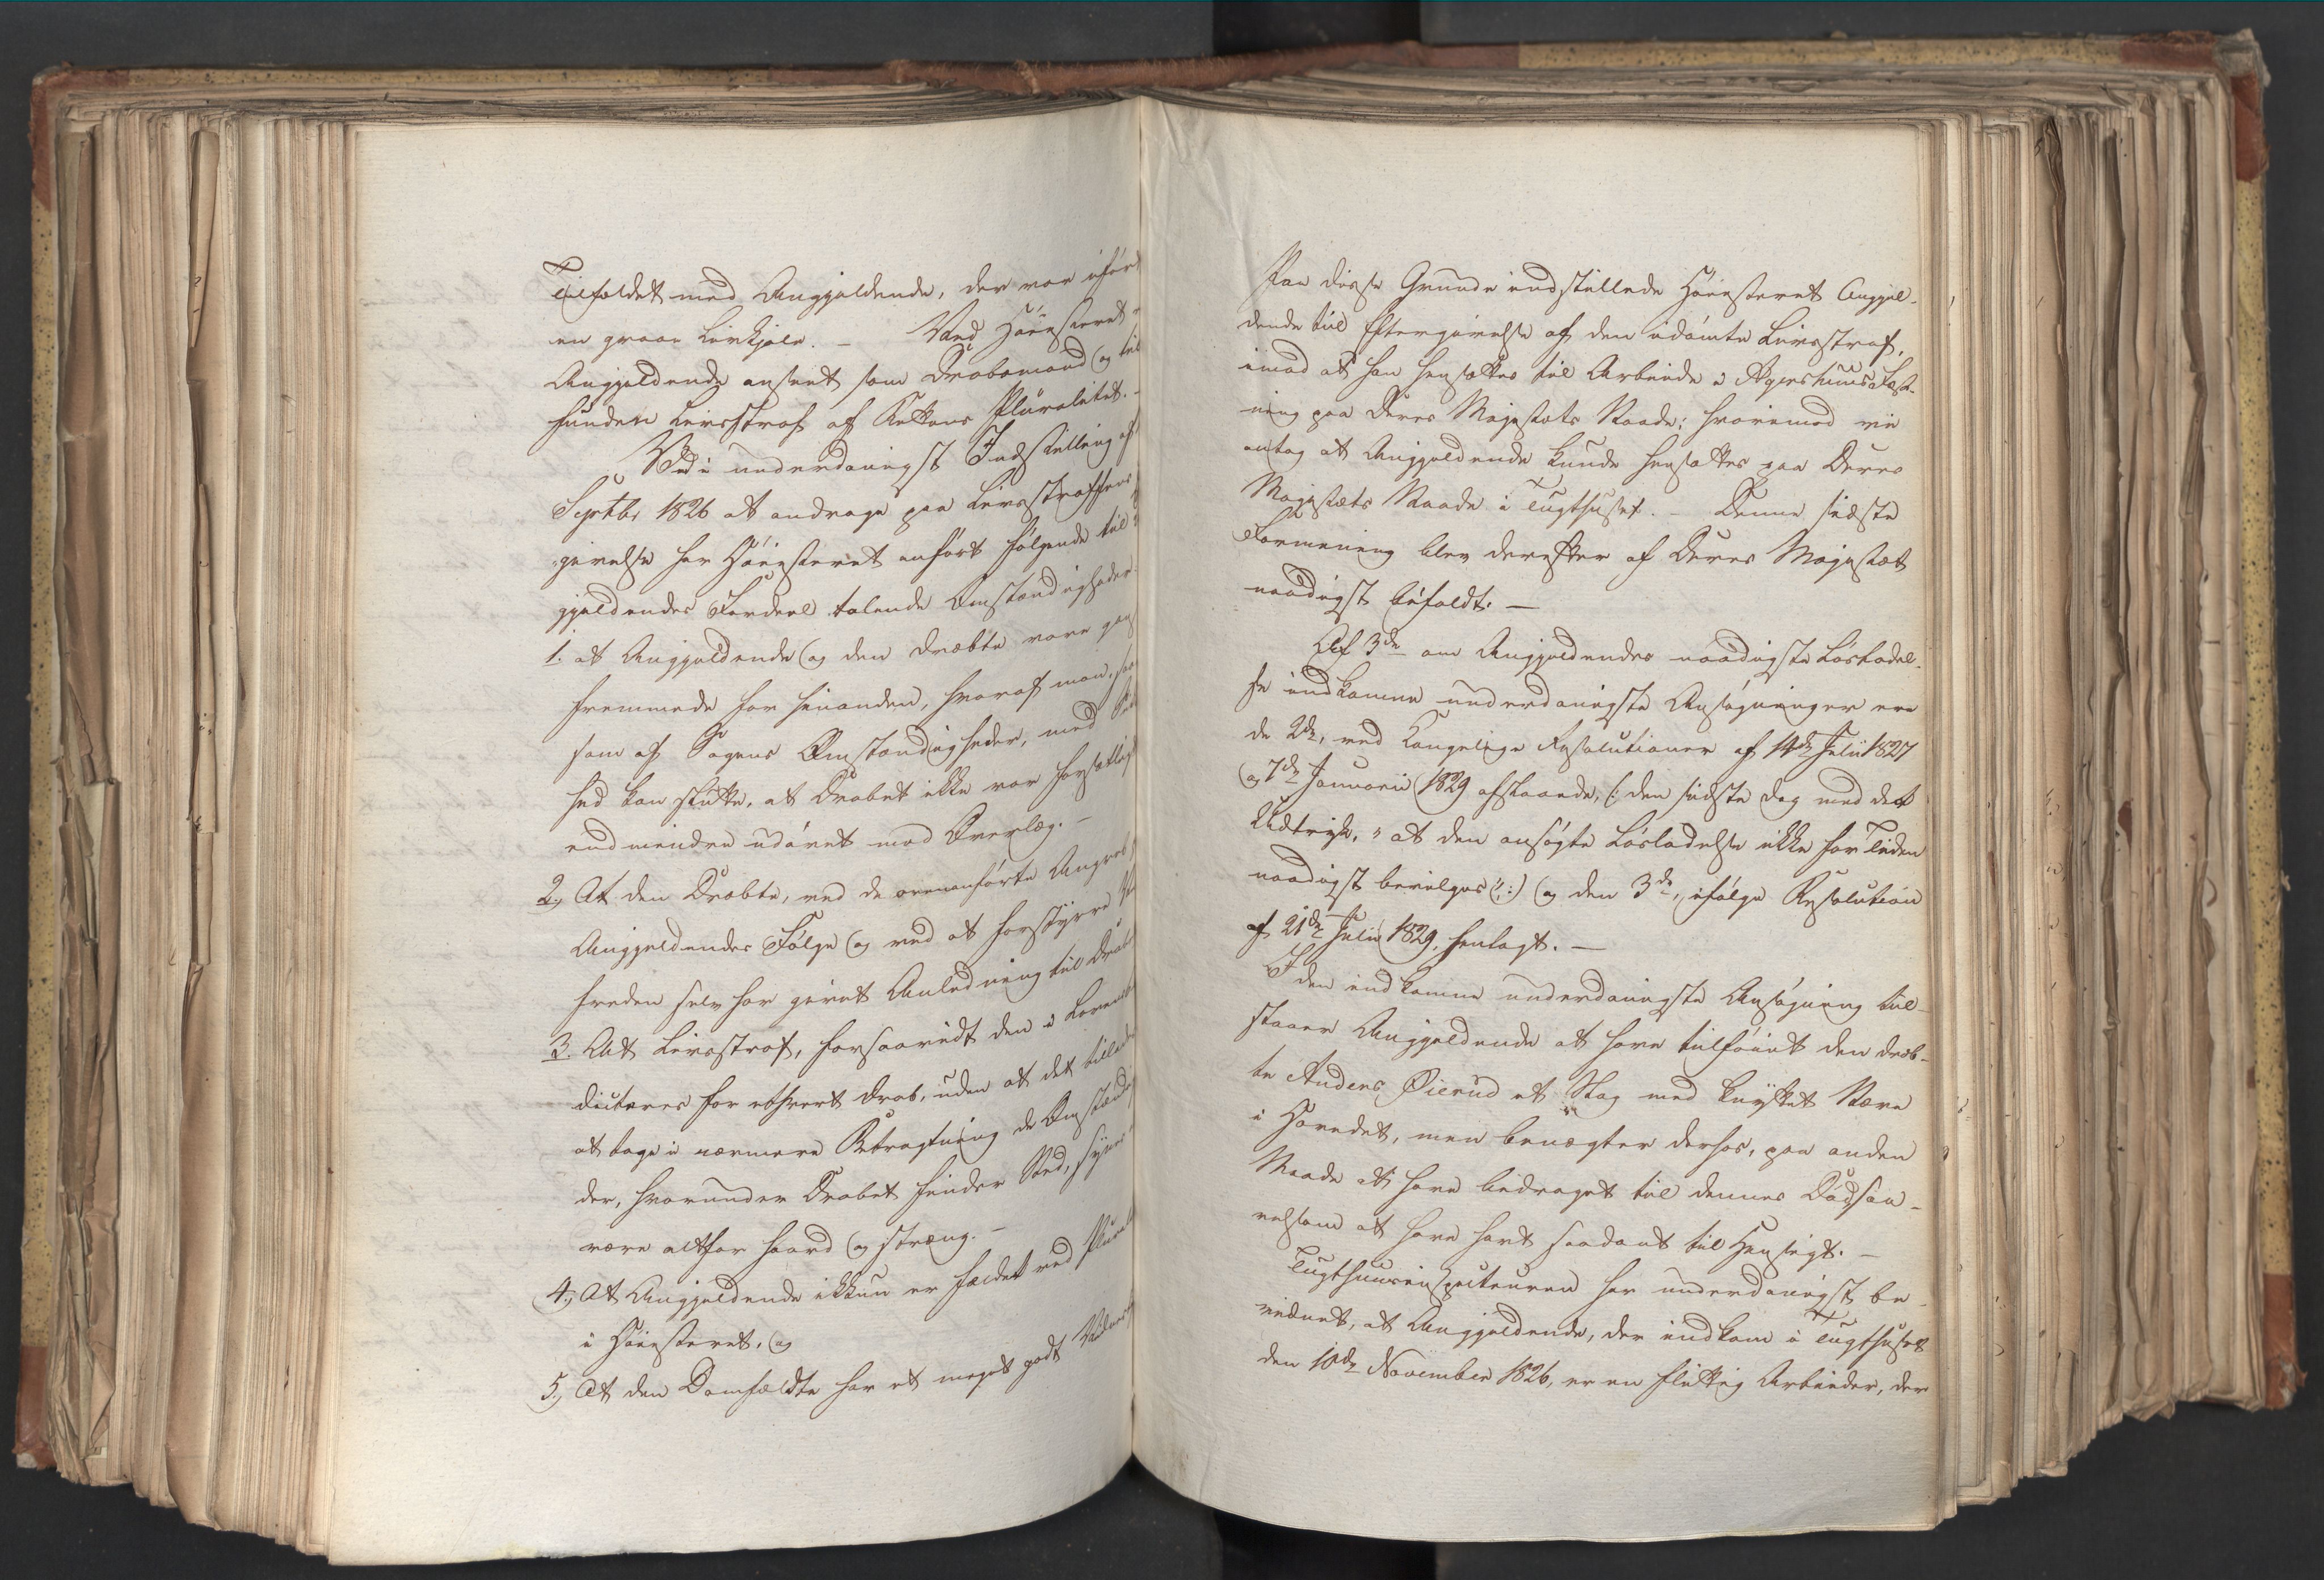 Tilfældet med Angjeldende, der var iført
en graae Livkjole. – Ved Høiesteret
Angjeldende anseet som Drabsmand og til
funden Livsstraf af Rettens Pluralitet. –
Ved i underdanigst Indstilling af
Septbr 1826 at andrage paa Livsstraffens
givelse har Høiesteret anført følgende til
gjeldendes Fordeel talende Omstændigheder
1. at Angjeldende og den Dræbte vare
fremmede for hinanden, hvoraf man,
som af Sagens Omstændigheder, med
hed kan slutte, at Drabet ikke var forsætligt
end mindre udøvet med Overlæg. –
2., At den Dræbte, ved de ovenanførte Angreb
Angjeldendes Følge og ved at forstyrre
freden selv har givet Anledning til Drabet
3. At Livsstraf, forsaavidt den i Loven
dicteres for ethvert Drab, uden at det tillades
at tage i nærmere Betragtning de Omstændig
der, hvorunder Drabet finder Sted, synes
være altfor haard og streng. –
4., At Angjeldende ikkun er fældet ved Plural
i Høiesteret, og
5., At den Domfældte har et meget godt Vidnes
Paa disse Grunde indstillede Høiesteret Angjel-
dende til Eftergivelse af den idømte Livsstraf,
imod at han hensættes til Arbeide i Agershuus Fæst-
ning paa Deres Majestæts Naade; hvorimod vi
antog at Angjeldende kunde hensættes paa Deres
Majestæts Naade i Tugthuset. – Denne sidste
Formening blev derefter af Deres Majestæt
naadigst bifaldt. –
Af 3de om Angjeldendes naadigste Løsladel-
se indkomne underdanigste Ansøgninger ere
de 2de, ved Kongelige Resolutioner af 14de Julii 1827
og 7de Januarii 1829 afslaaede, (: den sidste dog med det
Udtryk, "at den ansøgte Løsladelse ikke for Tiden
naadigst bevilges":) og den 3de, ifølge Resolution
af 21de Julii 1829, henlagt. –
I den indkomne underdanigste Ansøgning til-
staaer Angjeldende at have tilføiet den dræb-
te Anders Øierud et Slag med knyttet Næve
i Hovedet, men benægter derhos, paa anden
Maade at have bidraget til dennes Død saa-
velsom at have havt saadant til Hensigt. –
Tugthuusinspecteuren har underdanigst be-
vidnet, at Angjeldende, der indkom i Tugthuset
den 10de November 1826, er en flittig Arbeider, der